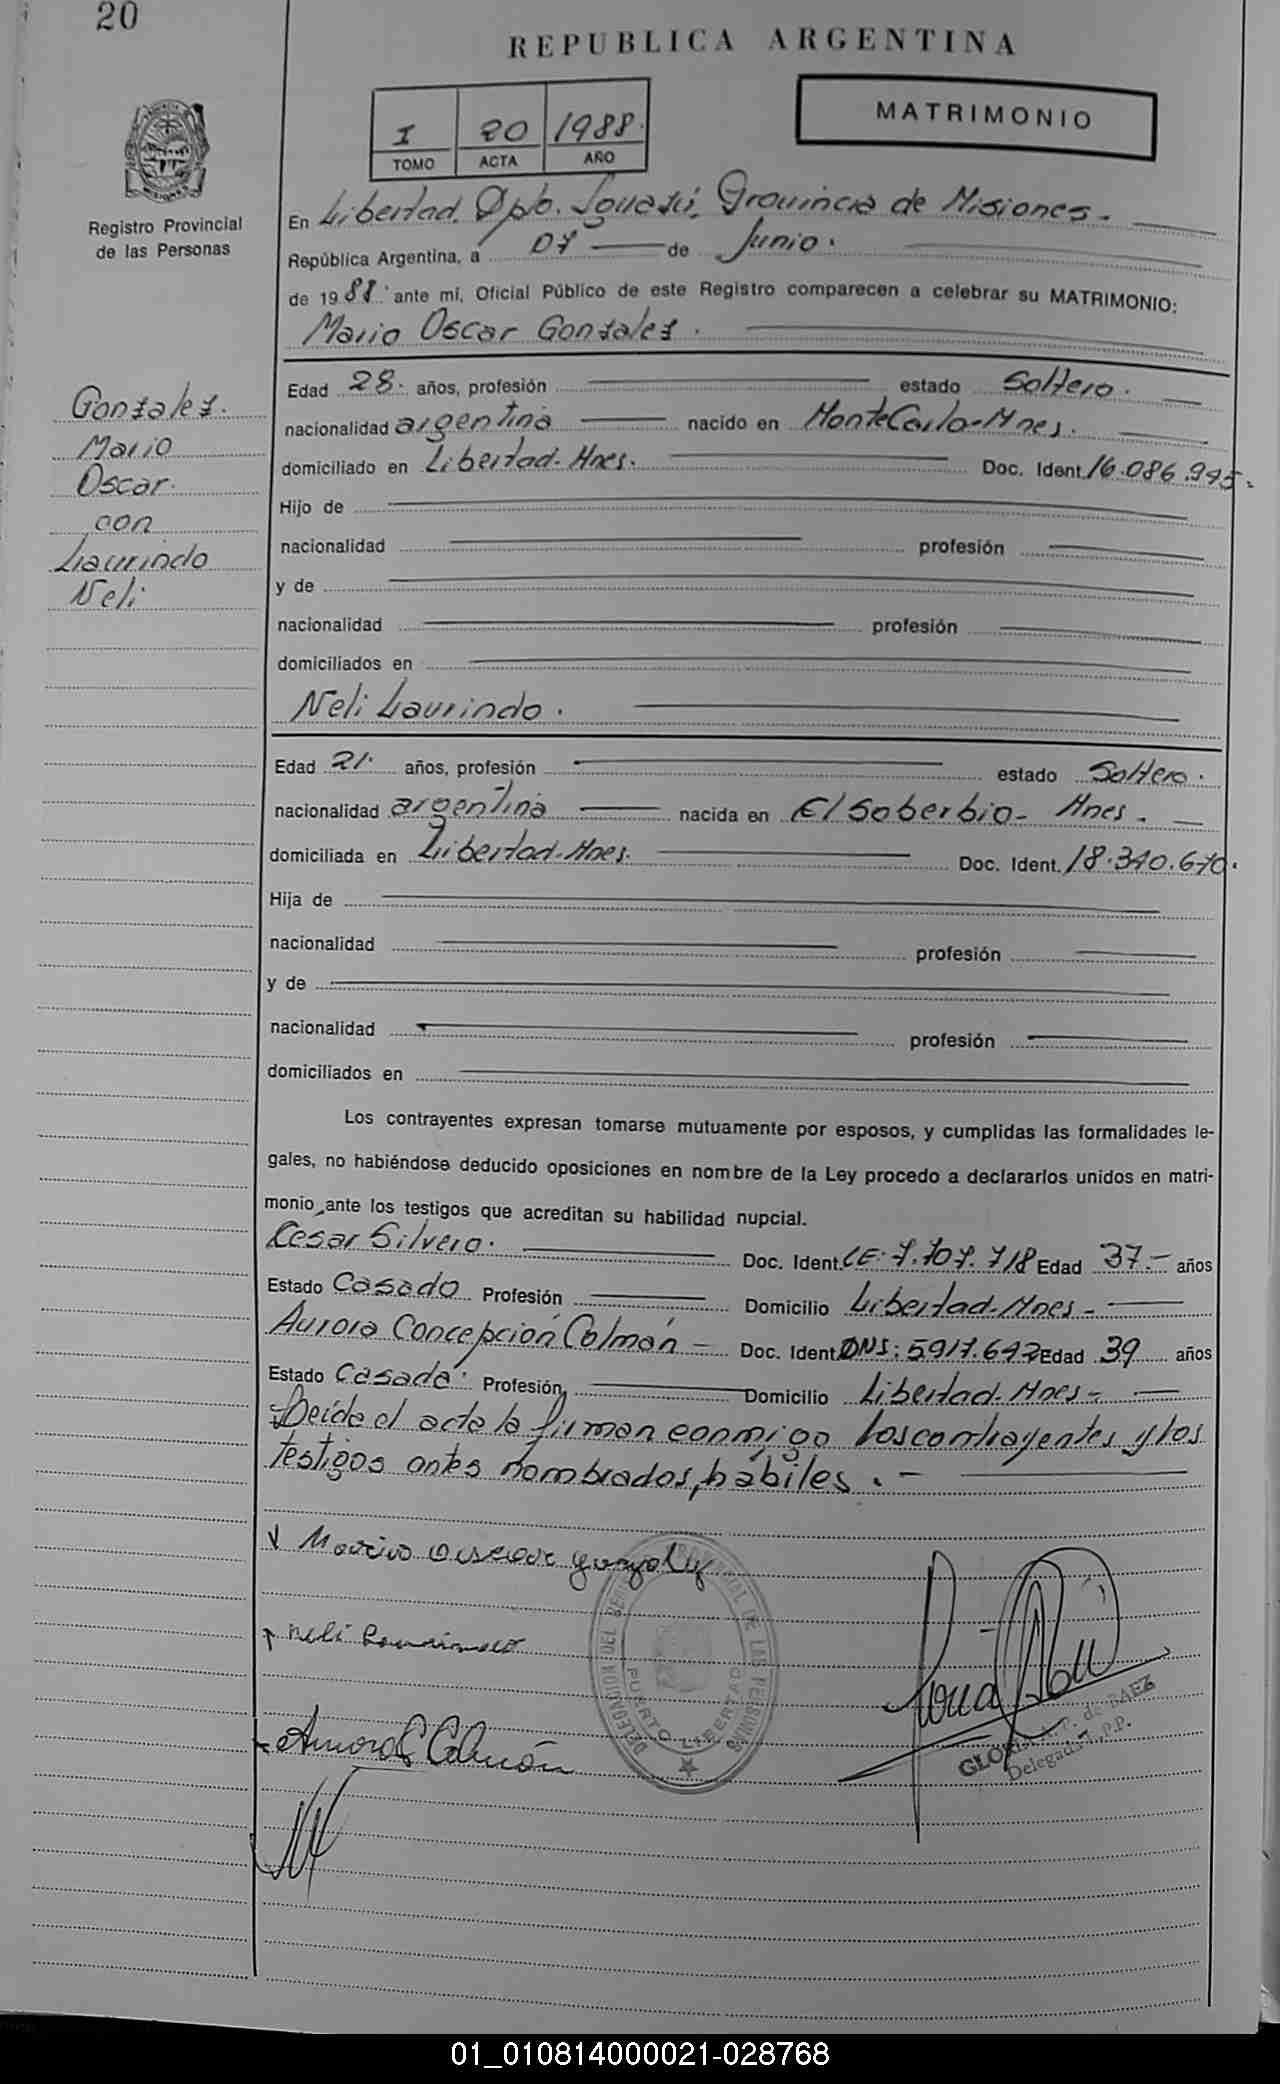 20
REPUBLICA ARGENTINA
I 20 1988.
TOMO ACTA AÑO
MATRIMONIO
Registro Provincial
de las Personas
En Libertad. Dpto. Iguazú, Provincia de Misiones. -
República Argentina, a 07 de Junio.
de 1988. ante mí, Oficial Público de este Registro comparecen a celebrar su MATRIMONIO:
Mario Oscar Gonzalez.
Gonzalez.
Mario
Oscar.
con
Laurindo
Neli
Edad 28. años, profesión estado Soltero.
nacionalidad argentina nacido en MonteCarlo-Mnes.
domiciliado en Libertad-Mnes. Doc. Ident. 16.086.995.
Hijo de
nacionalidad profesión
y de
nacionalidad profesión
domiciliados en
Neli Laurindo.
Edad 21. años, profesión estado Soltera.
nacionalidad argentina nacida en El Soberbio- Mnes.
domiciliada en Libertad-Mnes. Doc. Ident. 18.340.670.
Hija de
nacionalidad profesión
y de
nacionalidad profesión
domiciliados en
Los contrayentes expresan tomarse mutuamente por esposos, y cumplidas las formalidades le-
gales, no habiéndose deducido oposiciones en nombre de la Ley procedo a declararlos unidos en matri-
monio, ante los testigos que acreditan su habilidad nupcial.
Cesar Silvero. Doc. Ident. CE: 7.707.718 Edad 37.- años
Estado Casado Profesión Domicilio Libertad-Mnes-
Aurora Concepción Colmán - Doc. Ident. DNI: 5917.642 Edad 39 años
Estado Casada Profesión Domicilio Libertad-Mnes-
Leída el acta la firman conmigo los contrayentes y los
testigos antes nombrados, hábiles. -
Neli Laurindo
Aurora C Colmán
DELEGACION DEL REGISTRO PROVINCIAL DE LAS PERSONAS
PUERTO LIBERTAD
GLORIA P. de BAEZ
Delegada R.P.P.
01_010814000021-028768